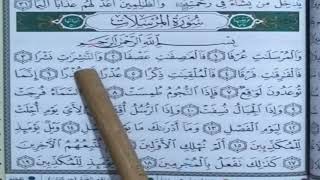 يُدْخِلُ مَن يَشَآءُ فِى رَحْمَتِهِۦ ۚ وَٱلظَّـٰلِمِينَ أَعَدَّ لَهُمْ عَذَابًا أَلِيمًۢا
سُورَةُ الْمُرْسَلَاتِ
بِسْمِ ٱللَّهِ ٱلرَّحْمَـٰنِ ٱلرَّحِيمِ
وَٱلْمُرْسَلَـٰتِ عُرْفًا ۝ فَٱلْعَـٰصِفَـٰتِ عَصْفًا ۝ وَٱلنَّـٰشِرَٰتِ نَشْرًا ۝
فَٱلْفَـٰرِقَـٰتِ فَرْقًا ۝ فَٱلْمُلْقِيَـٰتِ ذِكْرًا ۝ عُذْرًا أَوْ نُذْرًا ۝ إِنَّمَا
تُوعَدُونَ لَوَٰقِعٌ ۝ فَإِذَا ٱلنُّجُومُ طُمِسَتْ ۝ وَإِذَا ٱلسَّمَآءُ فُرِجَتْ
۝ وَإِذَا ٱلْجِبَالُ نُسِفَتْ ۝ وَإِذَا ٱلرُّسُلُ أُقِّتَتْ ۝ لِأَىِّ يَوْمٍ أُجِّلَتْ
۝ لِيَوْمِ ٱلْفَصْلِ ۝ وَمَآ أَدْرَىٰكَ مَا يَوْمُ ٱلْفَصْلِ ۝ وَيْلٌ يَوْمَئِذٍ
لِّلْمُكَذِّبِينَ ۝ أَلَمْ نُهْلِكِ ٱلْأَوَّلِينَ ۝ ثُمَّ نُتْبِعُهُمُ ٱلْـَٔاخِرِينَ
۝ كَذَٰلِكَ نَفْعَلُ بِٱلْمُجْرِمِينَ ۝ وَيْلٌ يَوْمَئِذٍ لِّلْمُكَذِّبِينَ ۝